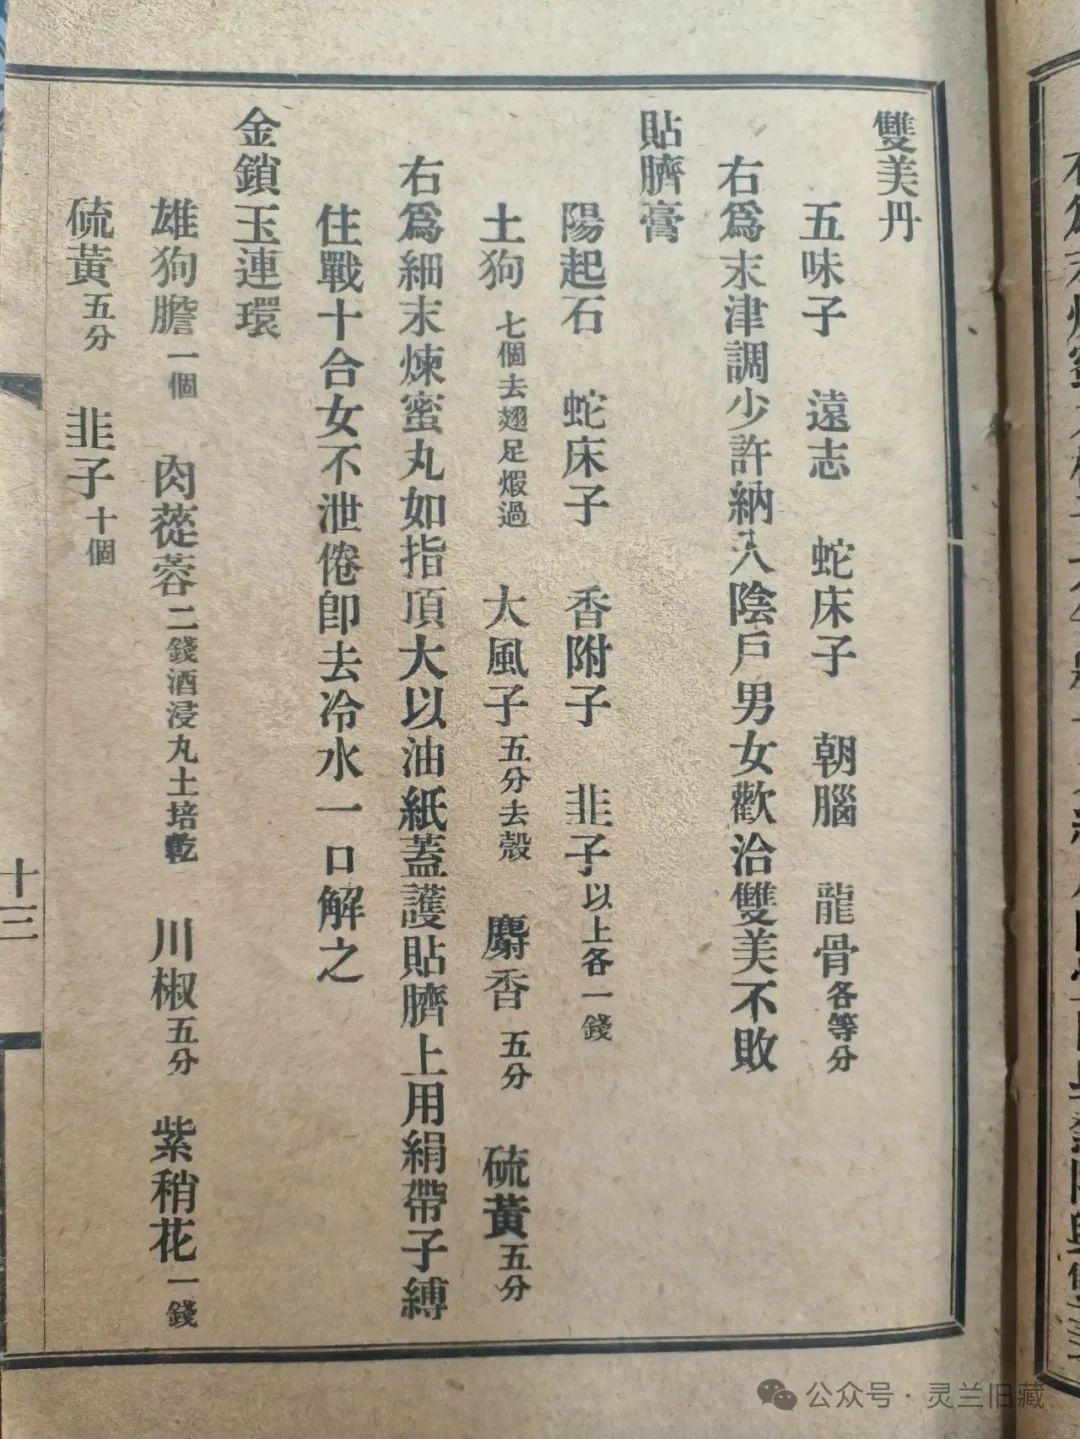 雙美丹
五味子　遠志　蛇床子　朝腦　龍骨各等分
右爲末津調少許納入陰戶男女歡洽雙美不敗
貼臍膏
陽起石　蛇床子　香附子　韭子以上各一錢
土狗七個去翅足煆過　大風子五分去殼　麝香五分　硫黃五分
右爲細末煉蜜丸如指頂大以油紙蓋護貼臍上用絹帶子縛
住戰十合女不泄倦卽去冷水一口解之
金鎖玉連環
雄狗膽一個　肉蓯蓉二錢酒浸丸土培乾　川椒五分　紫稍花一錢
硫黃五分　韭子十個
十三
公众号·灵兰旧藏